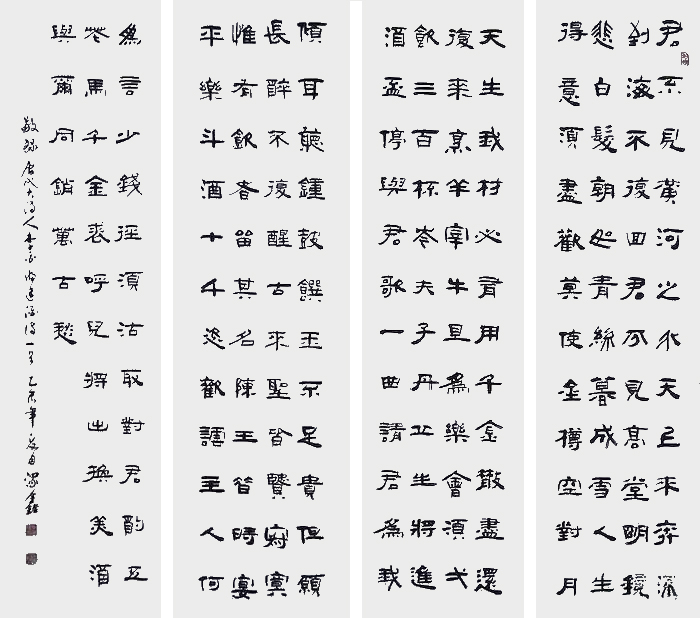 君不見黃河之水天上來奔流
到海不復回君不見高堂明鏡
悲白髮朝如青絲暮成雪人生
得意須盡歡莫使金樽空對月
天生我材必有用千金散盡還
復來烹羊宰牛且為樂會須弌
飲三百杯岑夫子丹丘生將進
酒盃停與君歌一曲請君為我
傾耳聽鐘鼓饌玉不足貴但願
長醉不復醒古來聖皆賢寂寞
惟有飲者留其名陳王昔時宴
平樂斗酒十千恣歡謔主人何
為言少錢徑須沽取對君酌五
花馬千金裘呼兒將出換美酒
與爾同銷萬古愁
敬錄唐代大詩人李白將進酒詩一首